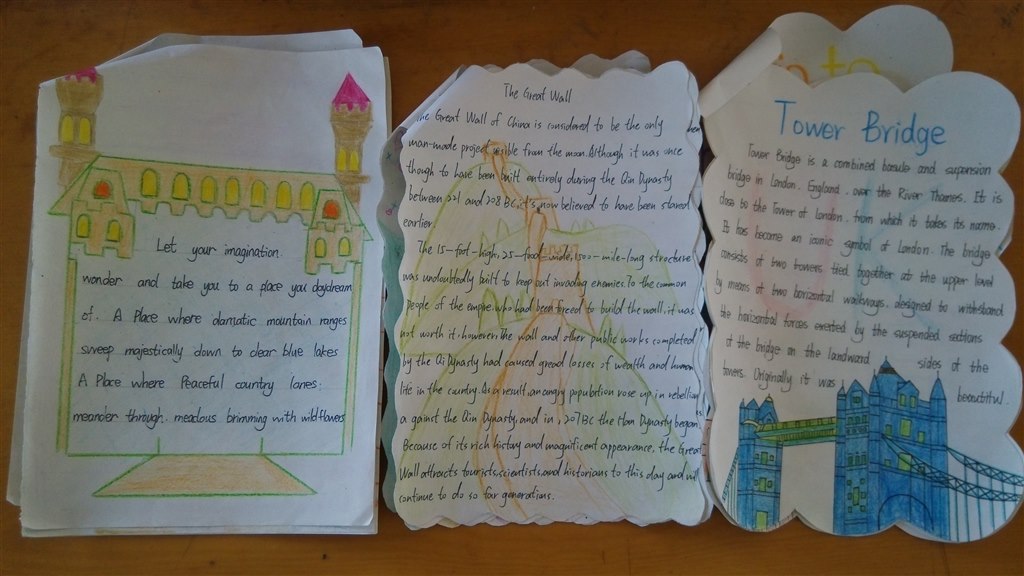 Let your imagination.
wonder and take you to a place you daydream
of. A Place where damatic mountain ranges
sweep majestically down to clear blue lakes
A Place where Peaceful country lanes.
meander through. meadous brimming with wildflowers
The Great Wall
The Great Wall of China is considered to be the only
man-made project visible from the moon. Although it was once
though to have been built entirely during the Qin Dynasty
between 221 and 208 BC, it's now believed to have been started
earlier.
The 15-foot-high, 25-foot-wide, 1500-mile-long structure
was undoubtedly built to keep out invading enemies. To the common
people of the empire, who had been forced to build the wall, it was
not worth it. however, the wall and other public works completed
by the Qi Dynasty had caused great losses of wealth and human
life in the country. As a result, an angry population rose up in rebellion
a gainst the Qin Dynasty, and in, 207 BC the Han Dynasty began.
Because of its rich history and magnificent appearance, the Great
Wall attracts tourists, scientists, and historians to this day and will
continue to do so for generations.
to
Tower Bridge
Tower Bridge is a combined bascule and suspension
bridge in London. England. over the River Thames. It is
close to the Tower of London. from which it takes its name.
It has become an iconic symbol of London. The bridge
consists of two towers tied together at the upper level
by means of two horizontal walkways. designed to withstand
the horizontal forces exerted by the suspended sections
of the bridge on the landward sides of the
towers. Originally it was beautiful.